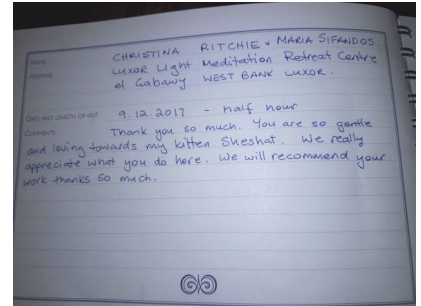 Name CHRISTINA RITCHIE & MARIA SIFANDOS.
Address LUXOR Light Meditation Retreat Centre
el Gabawy WEST BANK LUXOR.
DATE AND LENGTH OF VISIT 9.12.2017 - half hour
Comments Thank you so much. You are so gentle
and loving towards my kitten Sheshat. We really
appreciate what you do here. We will recommend your
work thanks so much.